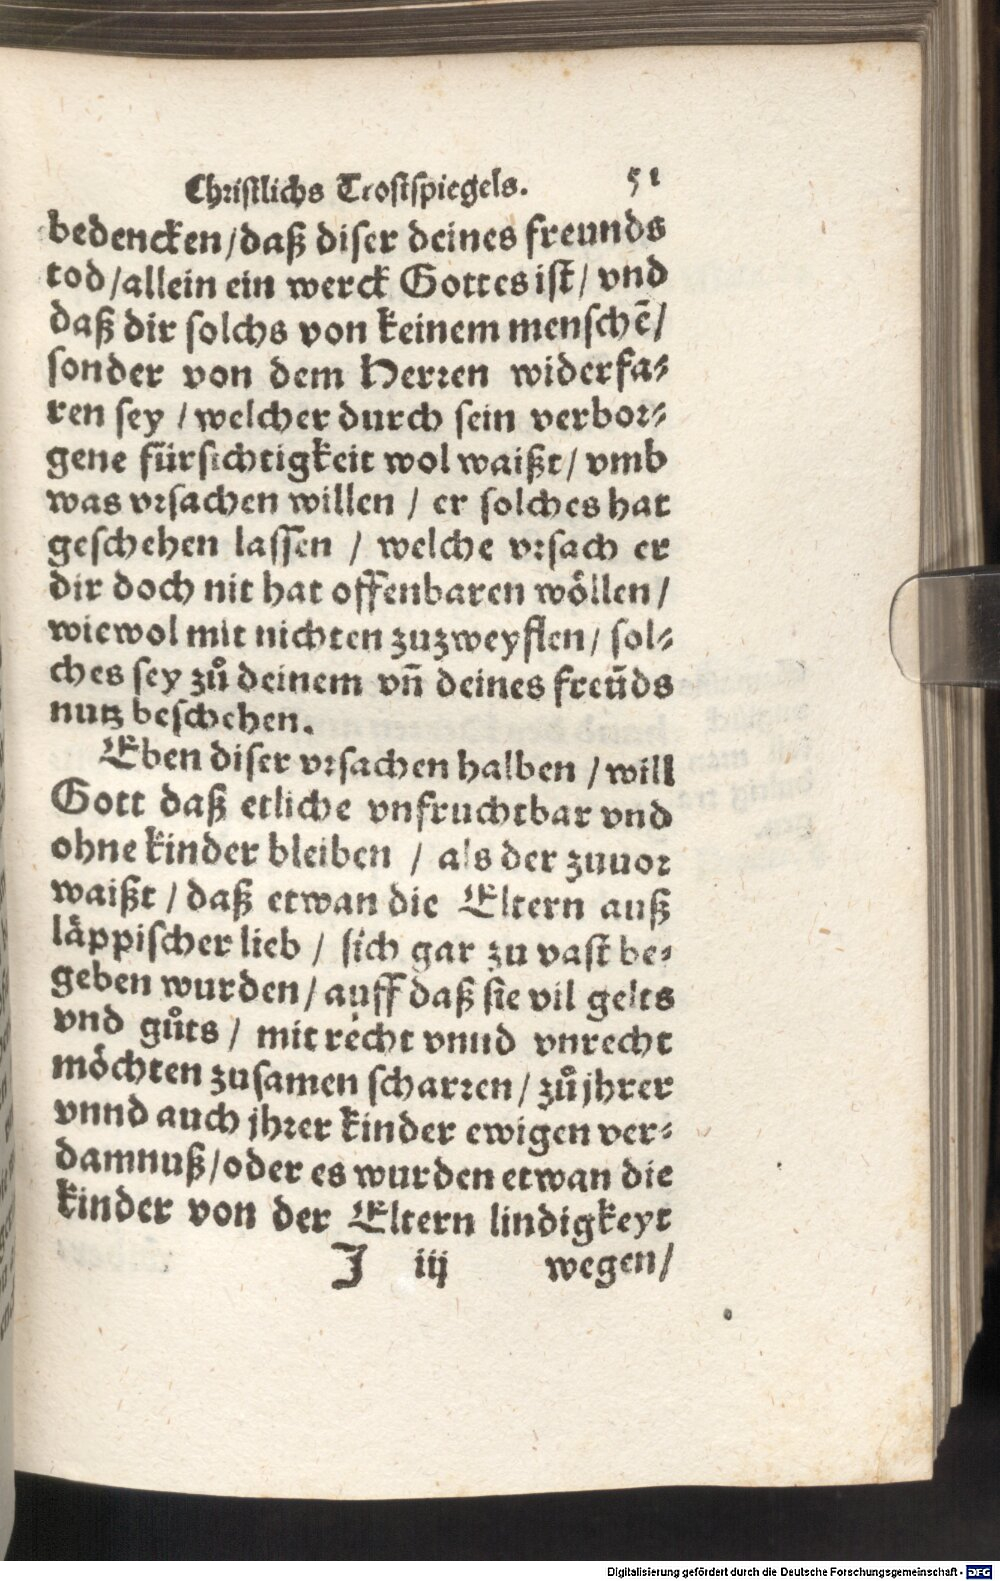 Christlichs Trostspiegels. 51
bedencken/daß diser deines freunds
tod/allein ein werck Gottes ist/ vnd
daß dir solchs von keinem menschẽ/
sonder von dem Herren widerfa-
ren sey / welcher durch sein verbor-
gene fürsichtigkeit wol waißt/ vmb
was vrsachen willen / er solches hat
geschehen lassen / welche vrsach er
dir doch nit hat offenbaren wöllen/
wiewol mit nichten zuzweyflen/ sol-
ches sey zů deinem vñ deines freũds
nutz beschehen.
Eben diser vrsachen halben / will
Gott daß etliche vnfruchtbar vnd
ohne kinder bleiben / als der zuuor
waißt / daß etwan die Eltern auß
läppischer lieb / sich gar zu vast be-
geben wurden/ auff daß sie vil gelts
vnd gůts / mit recht vnnd vnrecht
möchten zusamen scharren/ zů jhrer
vnnd auch jhrer kinder ewigen ver-
damnuß/oder es wurden etwan die
kinder von der Eltern lindigkeyt
J iij wegen/
Digitalisierung gefördert durch die Deutsche Forschungsgemeinschaft - DFG